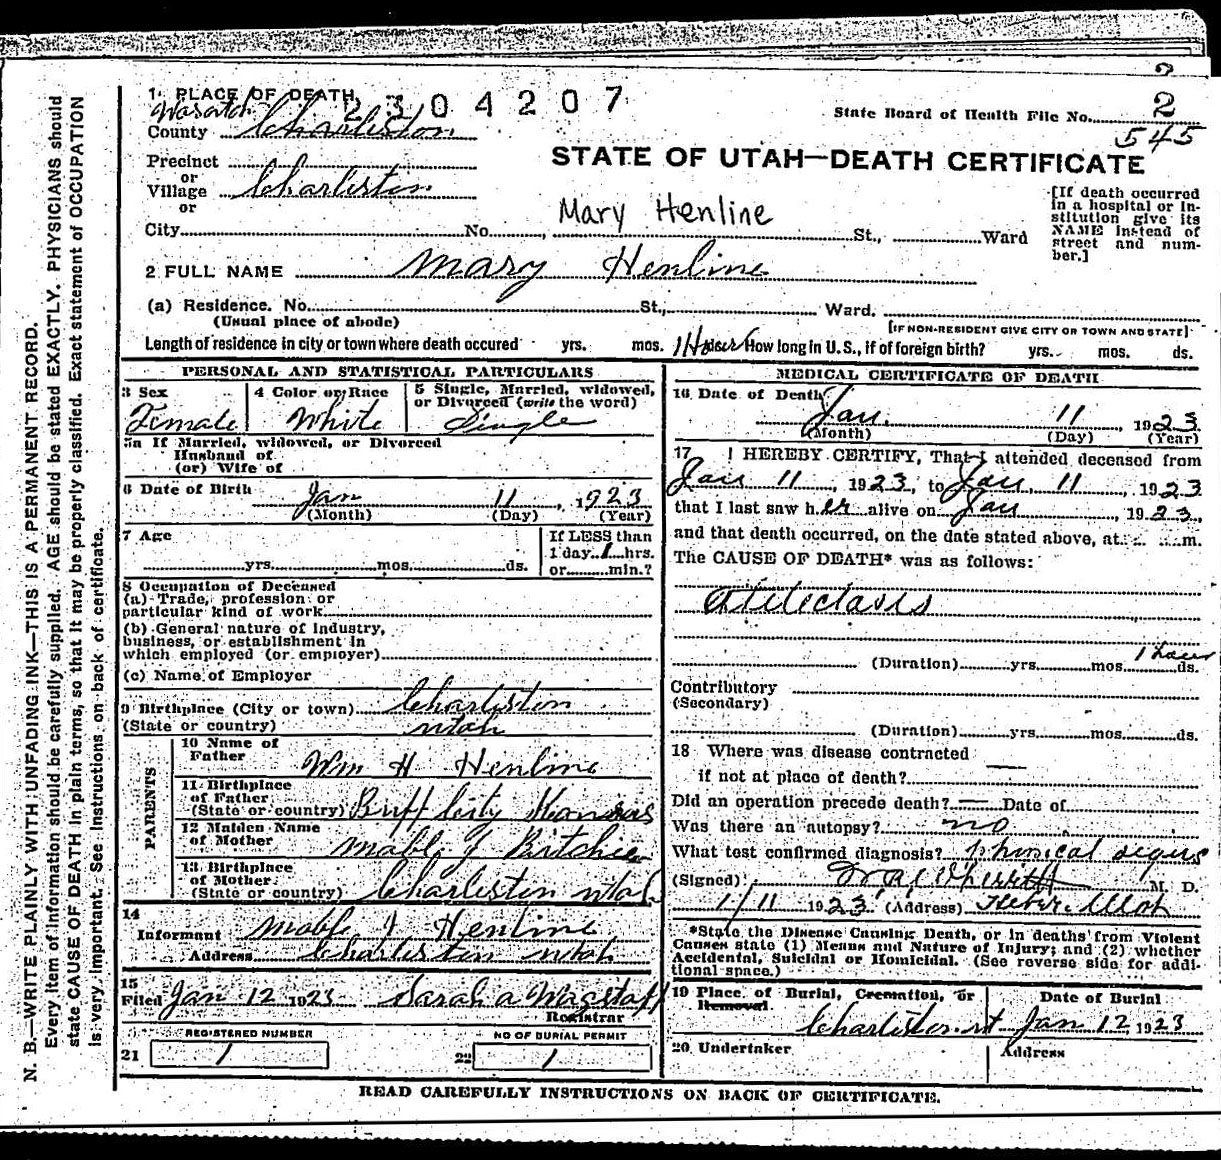 2
1. PLACE OF DEATH
2304207
State Board of Health File No. 2
545
Wasatch
County Charleston
STATE OF UTAH—DEATH CERTIFICATE
Precinct
or
Village Charleston
or
City No. St., Ward
Mary Henline
[If death occurred in a hospital or institution give its NAME instead of street and number.]
2 FULL NAME Mary Henline
(a) Residence. No. St., Ward.
(Usual place of abode)
[IF NON-RESIDENT GIVE CITY OR TOWN AND STATE]
Length of residence in city or town where death occured yrs. mos. 1 Hour How long in U.S., if of foreign birth? yrs. mos. ds.
PERSONAL AND STATISTICAL PARTICULARS
3 Sex
Female
4 Color or Race
White
5 Single, Married, widowed,
or Divorced (write the word)
Single
5a If Married, widowed, or Divorced
Husband of
(or) Wife of
6 Date of Birth Jan 11, 1923
(Month) (Day) (Year)
7 Age
yrs. mos. ds.
If LESS than
1 day 1 hrs.
or min.?
8 Occupation of Deceased
(a) Trade, profession or
particular kind of work
(b) General nature of Industry,
business, or establishment in
which employed (or employer)
(c) Name of Employer
9 Birthplace (City or town) Charleston
(State or country) utah
PARENTS
10 Name of
Father Wm H Henline
11 Birthplace
of Father
(State or country) City Kansas
12 Maiden Name
of Mother Mable J Ritchie
13 Birthplace
of Mother
(State or country) Charleston utah
14
Informant Mable J Henline
Address Charleston utah
15
Filed Jan 12 1923 Sarah a Wagstaff
Registrar
REGISTERED NUMBER
21 1
NO OF BURIAL PERMIT
22 1
MEDICAL CERTIFICATE OF DEATH
16 Date of Death Jan. 11, 1923
(Month) (Day) (Year)
17 I HEREBY CERTIFY, That I attended deceased from
Jan 11, 1923, to Jan. 11, 1923
that I last saw her alive on Jan, 1923,
and that death occurred, on the date stated above, at m.
The CAUSE OF DEATH* was as follows:
Atelectasis
(Duration) yrs. mos. 1 hour ds.
Contributory
(Secondary)
(Duration) yrs. mos. ds.
18 Where was disease contracted
if not at place of death?
Did an operation precede death? — Date of
Was there an autopsy? no
What test confirmed diagnosis? physical signs
(Signed) M. D.
1/11 1923 (Address) Heber, Utah
*State the Disease Causing Death, or in deaths from Violent
Causes state (1) Means and Nature of Injury; and (2) whether
Accidental, Suicidal or Homicidal. (See reverse side for addi-
tional space.)
19 Place of Burial, Cremation, or
Removal
Charleston ut
Date of Burial
Jan 12, 1923
20 Undertaker
Address
READ CAREFULLY INSTRUCTIONS ON BACK OF CERTIFICATE.
N. B.—WRITE PLAINLY WITH UNFADING INK—THIS IS A PERMANENT RECORD.
Every item of information should be carefully supplied. AGE should be stated EXACTLY. PHYSICIANS should
state CAUSE OF DEATH in plain terms, so that it may be properly classified. Exact statement of OCCUPATION
is very important. See Instructions on back of certificate.